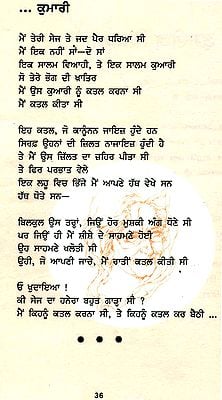 ... ਕੁਮਾਰੀ
ਮੈਂ ਤੇਰੀ ਸੇਜ ਤੇ ਜਦ ਪੈਰ ਧਰਿਆ ਸੀ
ਮੈਂ ਇਕ ਨਹੀਂ ਸਾਂ—ਦੋ ਸਾਂ
ਇਕ ਸਾਲਮ ਵਿਆਹੀ, ਤੇ ਇਕ ਸਾਲਮ ਕੁਆਰੀ
ਸੋ ਤੇਰੇ ਭੋਗ ਦੀ ਖਾਤਿਰ
ਮੈਂ ਉਸ ਕੁਆਰੀ ਨੂੰ ਕਤਲ ਕਰਨਾ ਸੀ
ਮੈਂ ਕਤਲ ਕੀਤਾ ਸੀ
ਇਹ ਕਤਲ, ਜੋ ਕਾਨੂੰਨਨ ਜਾਇਜ਼ ਹੁੰਦੇ ਹਨ
ਸਿਰਫ਼ ਉਹਨਾਂ ਦੀ ਜ਼ਿਲਤ ਨਾਜਾਇਜ਼ ਹੁੰਦੀ ਹੈ
ਤੇ ਮੈਂ ਉਸ ਜ਼ਿੱਲਤ ਦਾ ਜ਼ਹਿਰ ਪੀਤਾ ਸੀ
ਤੇ ਫਿਰ ਪਰਭਾਤ ਵੇਲੇ
ਇਕ ਲਹੂ ਵਿਚ ਭਿੱਜੇ ਮੈਂ ਆਪਣੇ ਹੱਥ ਵੇਖੇ ਸਨ
ਹੱਥ ਧੋਤੇ ਸਨ—
ਬਿਲਕੁਲ ਉਸ ਤਰ੍ਹਾਂ, ਜਿਉਂ ਹੋਰ ਮੁਸ਼ਕੀ ਅੰਗ ਧੋਣੇ ਸੀ
ਪਰ ਜਿਉਂ ਹੀ ਮੈਂ ਸ਼ੀਸ਼ੇ ਦੇ ਸਾਹਮਣੇ ਹੋਈ
ਉਹ ਸਾਹਮਣੇ ਖਲੋਤੀ ਸੀ
ਉਹੀ, ਜੋ ਆਪਣੀ ਜਾਚੇ, ਮੈਂ ਰਾਤੀਂ ਕਤਲ ਕੀਤੀ ਸੀ
ਓ ਖ਼ੁਦਾਇਆ !
ਕੀ ਸੇਜ ਦਾ ਹਨੇਰਾ ਬਹੁਤ ਗਾੜ੍ਹਾ ਸੀ ?
ਮੈਂ ਕਿਹਨੂੰ ਕਤਲ ਕਰਨਾ ਸੀ, ਤੇ ਕਿਹਨੂੰ ਕਤਲ ਕਰ ਬੈਠੀ ...
36